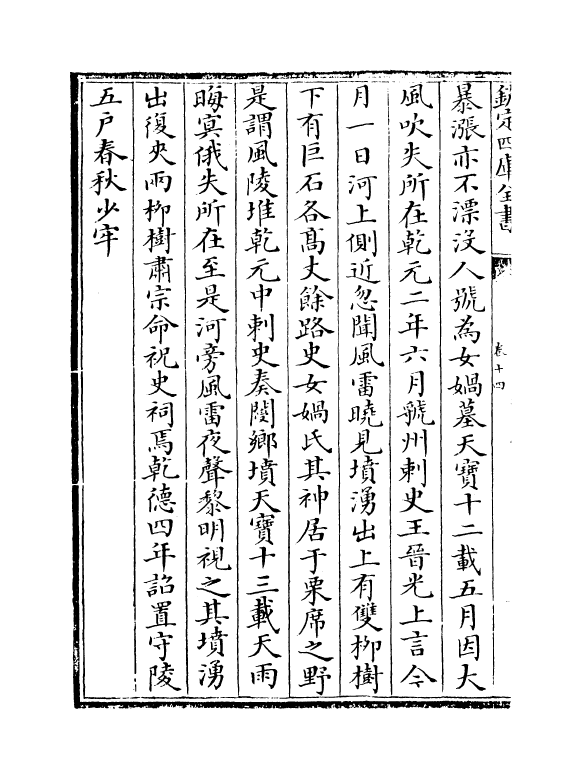 欽定四庫全書
卷十四
暴漲亦不漂沒人號為女媧墓天寶十二載五月因大
風吹失所在乾元二年六月虢州刺史王晉光上言今
月一日河上側近忽聞風雷曉見墳湧出上有雙柳樹
下有巨石各髙丈餘路史女媧氏其神居于栗席之野
是謂風陵堆乾元中刺史奏閿鄉墳天寶十三載天雨
晦冥俄失所在至是河旁風雷夜聲黎明視之其墳湧
出復夾兩柳樹肅宗命祝史祠焉乾德四年詔置守陵
五戶春秋少牢